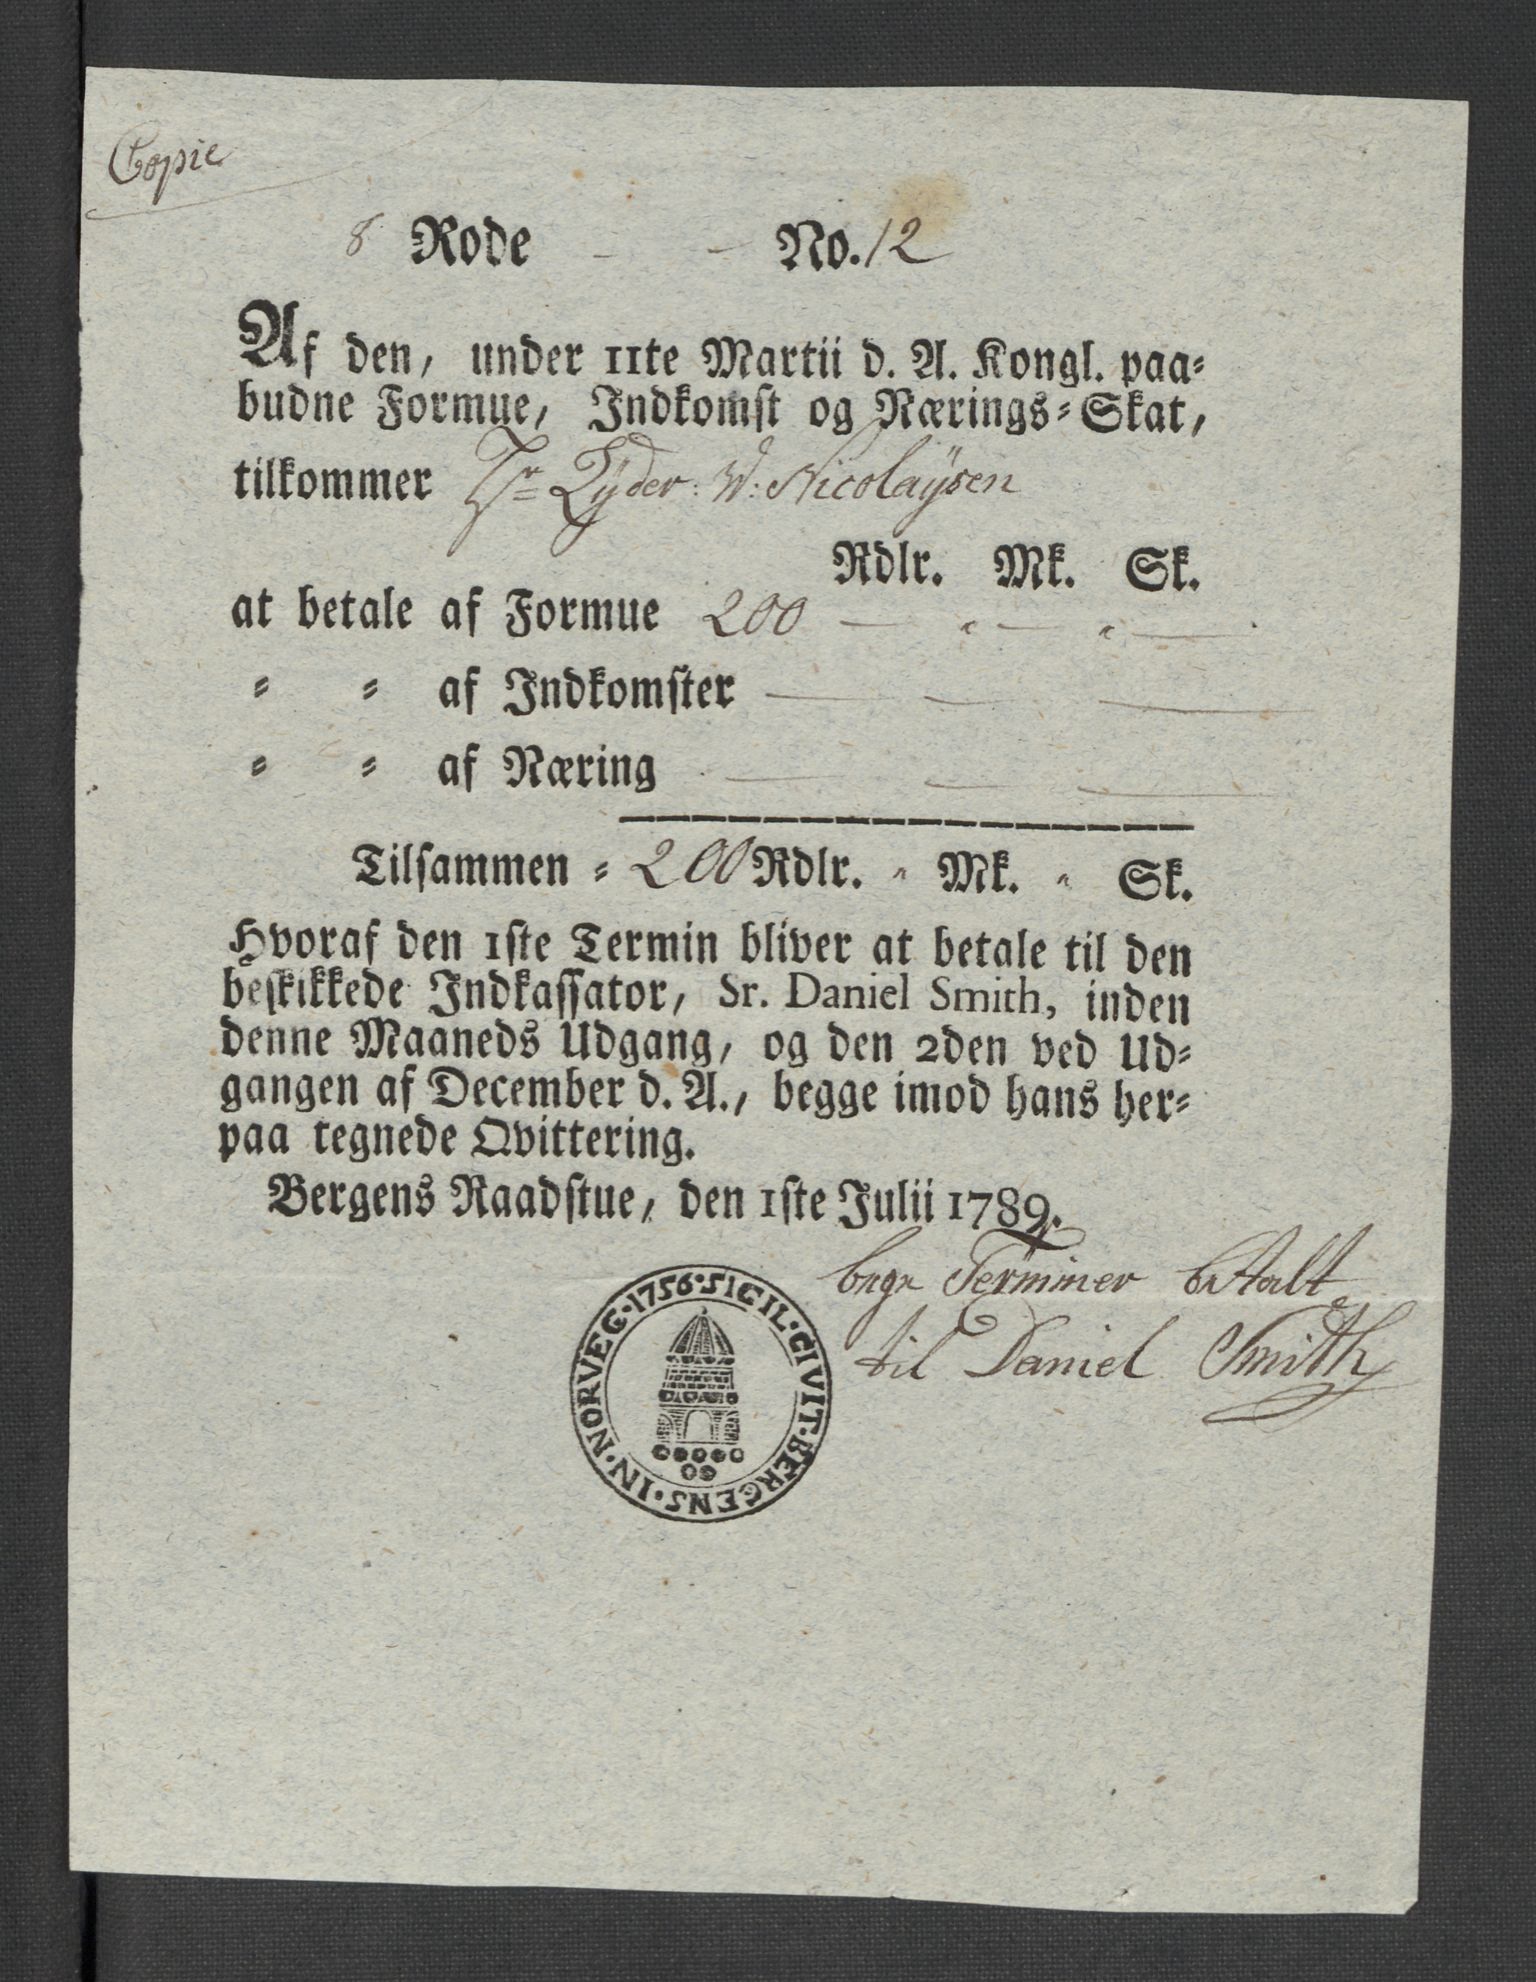 Copie
8 Rode - - No. 12
Af den, under 11te Martii d. A. Kongl. paa-
budne Formue, Indkomst og Nærings-Skat,
tilkommer Hr Lyder: W: Nicolaÿsen
Rdlr. Mk. Sk.
at betale af Formue 200 — " — " —
" " af Indkomster — — —
" " af Næring — — —
Tilsammen = 200 Rdlr. " Mk. " Sk.
Hvoraf den 1ste Termin bliver at betale til den
beskikkede Indkassator, Sr. Daniel Smith, inden
denne Maaneds Udgang, og den 2den ved Ud-
gangen af December d. A., begge imod hans her-
paa tegnede Qvittering.
Bergens Raadstue, den 1ste Julii 1789.
begge Terminer betalt
til Daniel Smith
1756 · SIGIL · CIVIT · BERGENS · IN · NORVEG ·